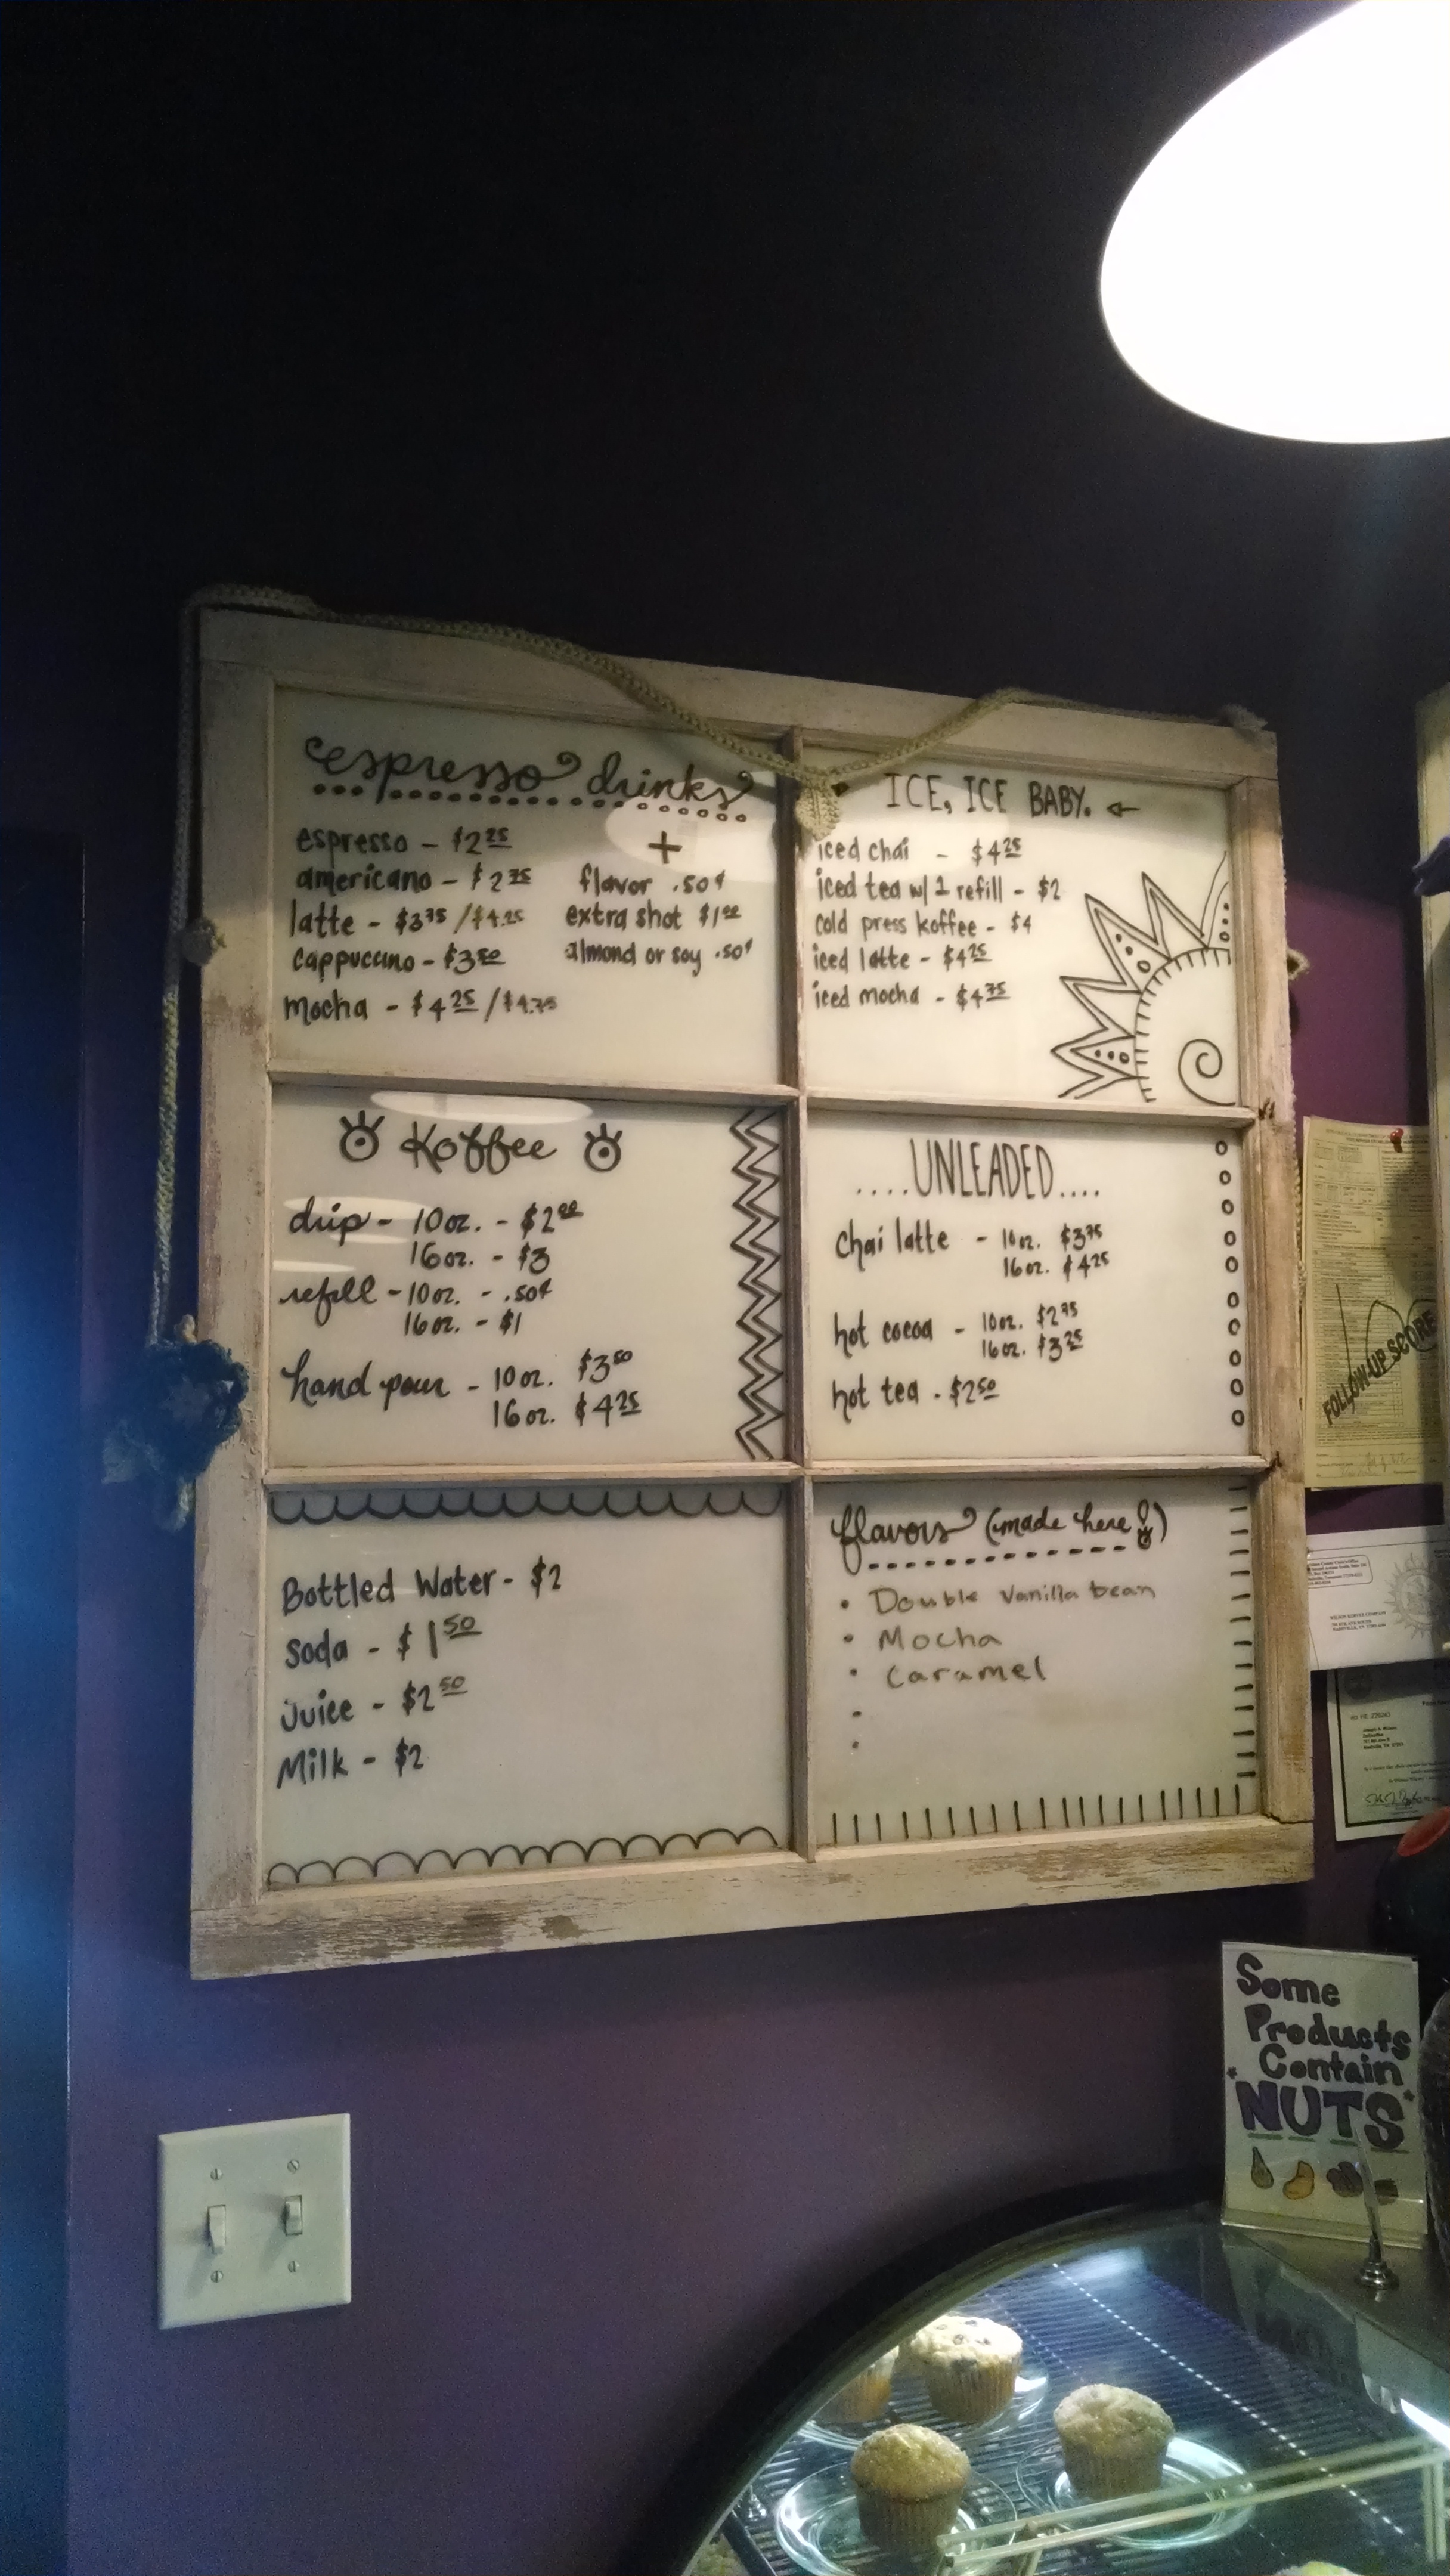 espresso drinks
espresso - $2.25
americano - $2.75
latte - $3.75 / $4.25
cappuccino - $3.50
mocha - $4.25 / $4.75
+
flavor .50¢
extra shot $1.00
almond or soy .50¢
ICE, ICE BABY.
iced chai - $4.25
iced tea w/ 1 refill - $2
cold press koffee - $4
iced latte - $4.25
iced mocha - $4.75
Koffee
drip - 10 oz. - $2.00
16 oz. - $3
refill - 10 oz. - .50¢
16 oz. - $1
hand pour - 10 oz. $3.50
16 oz. $4.25
....UNLEADED....
chai latte - 10 oz. $3.75
16 oz. $4.25
hot cocoa - 10 oz. $2.75
16 oz. $3.25
hot tea - $2.50
Bottled Water - $2
Soda - $1.50
Juice - $2.50
Milk - $2
flavors (made here!)
• Double Vanilla bean
• Mocha
• Caramel
FOLLOW-UP SCORE
Some
Products
Contain
NUTS